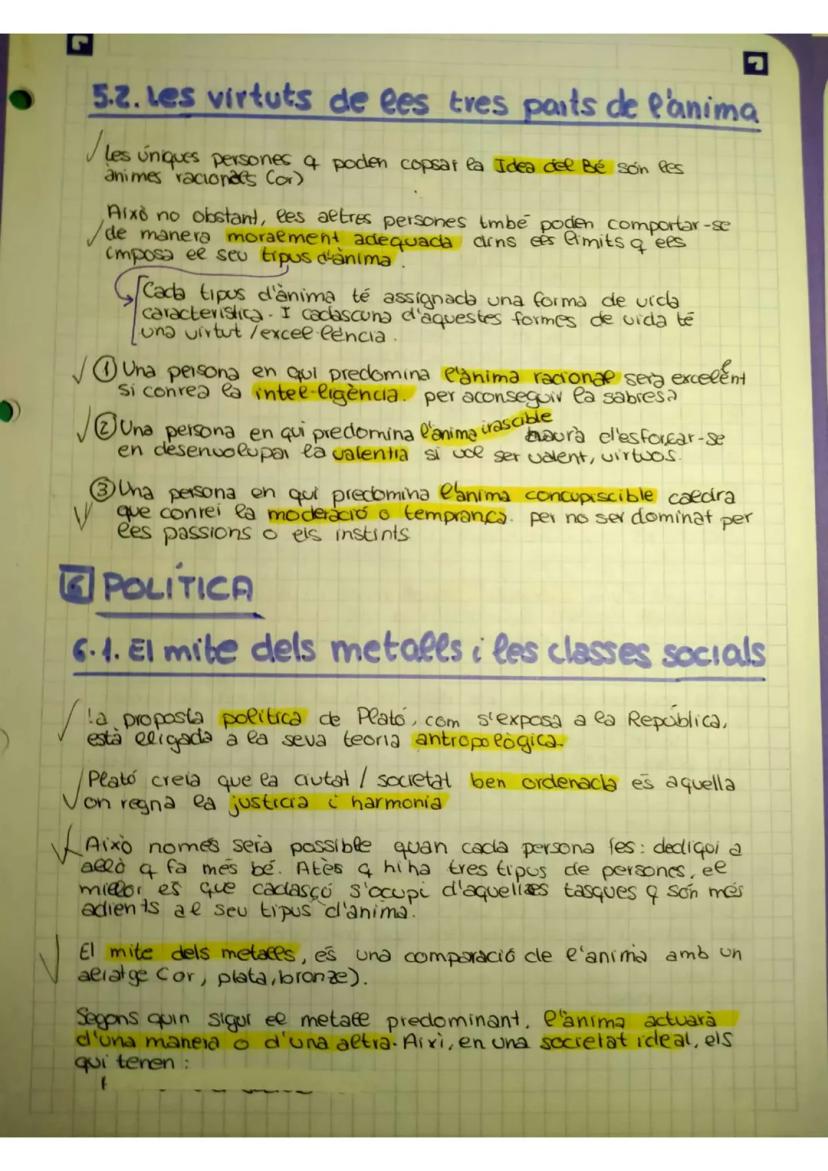 5.2. Les virtuts de les tres parts de l'anima
Les úniques persones q poden copsar la Idea del Bé són les
ànimes racionals (or)
Això no obstant, les altres persones tmbé poden comportar-se
de manera moralment adequada dins els límits q els
imposa el seu tipus d'ànima.
Cada tipus d'ànima té assignada una forma de vida
característica. I cadascuna d'aquestes formes de vida té
una virtut / excel·lència.
① Una persona en qui predomina l'ànima racional serà excel·lent
si conrea la intel·ligència. per aconseguir la sabresa
② Una persona en qui predomina l'anima irascible haurà d'esforçar-se
en desenvolupar la valentia si vol ser valent, virtuos.
③ Una persona en qui predomina l'ànima concupiscible caldra
que conrei la moderació o temprança. per no ser dominat per
les passions o els instints
6 POLÍTICA
6.1. El mite dels metalls i les classes socials
La proposta política de Plató, com s'exposa a la República,
està lligada a la seva teoria antropològica.
Plató creia que la ciutat / societat ben ordenada és aquella
on regna la justicia i harmonia
Això només seria possible quan cada persona es dediqui a
allò q fa més bé. Atès q hi ha tres tipus de persones, el
millor es que cadasçó s'ocupi d'aquelles tasques q són més
adients al seu tipus d'anima.
El mite dels metalls, és una comparació de l'anima amb un
aliatge (or, plata, bronze).
Segons quin sigui el metall predominant, l'ànima actuarà
d'una manera o d'una altra. Així, en una societat ideal, els
qui tenen: